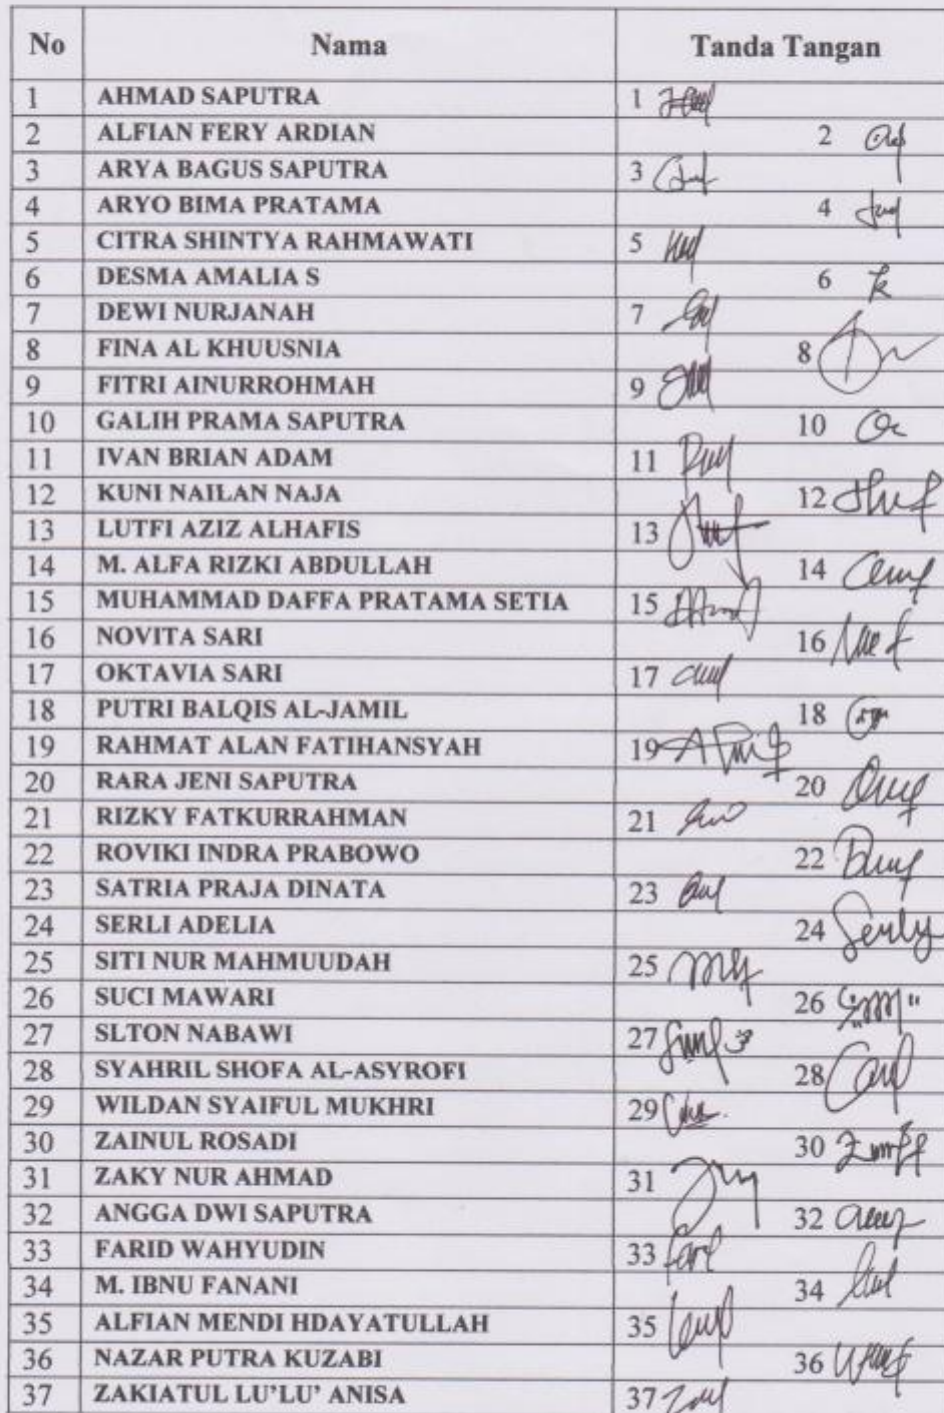 No Nama Tanda Tangan
1 AHMAD SAPUTRA 1
2 ALFIAN FERY ARDIAN 2
3 ARYA BAGUS SAPUTRA 3
4 ARYO BIMA PRATAMA 4
5 CITRA SHINTYA RAHMAWATI 5
6 DESMA AMALIA S 6
7 DEWI NURJANAH 7
8 FINA AL KHUUSNIA 8
9 FITRI AINURROHMAH 9
10 GALIH PRAMA SAPUTRA 10
11 IVAN BRIAN ADAM 11
12 KUNI NAILAN NAJA 12
13 LUTFI AZIZ ALHAFIS 13
14 M. ALFA RIZKI ABDULLAH 14
15 MUHAMMAD DAFFA PRATAMA SETIA 15
16 NOVITA SARI 16
17 OKTAVIA SARI 17
18 PUTRI BALQIS AL-JAMIL 18
19 RAHMAT ALAN FATIHANSYAH 19
20 RARA JENI SAPUTRA 20
21 RIZKY FATKURRAHMAN 21
22 ROVIKI INDRA PRABOWO 22
23 SATRIA PRAJA DINATA 23
24 SERLI ADELIA 24 Serly
25 SITI NUR MAHMUUDAH 25
26 SUCI MAWARI 26
27 SLTON NABAWI 27
28 SYAHRIL SHOFA AL-ASYROFI 28
29 WILDAN SYAIFUL MUKHRI 29
30 ZAINUL ROSADI 30
31 ZAKY NUR AHMAD 31
32 ANGGA DWI SAPUTRA 32
33 FARID WAHYUDIN 33
34 M. IBNU FANANI 34
35 ALFIAN MENDI HDAYATULLAH 35
36 NAZAR PUTRA KUZABI 36
37 ZAKIATUL LU'LU' ANISA 37